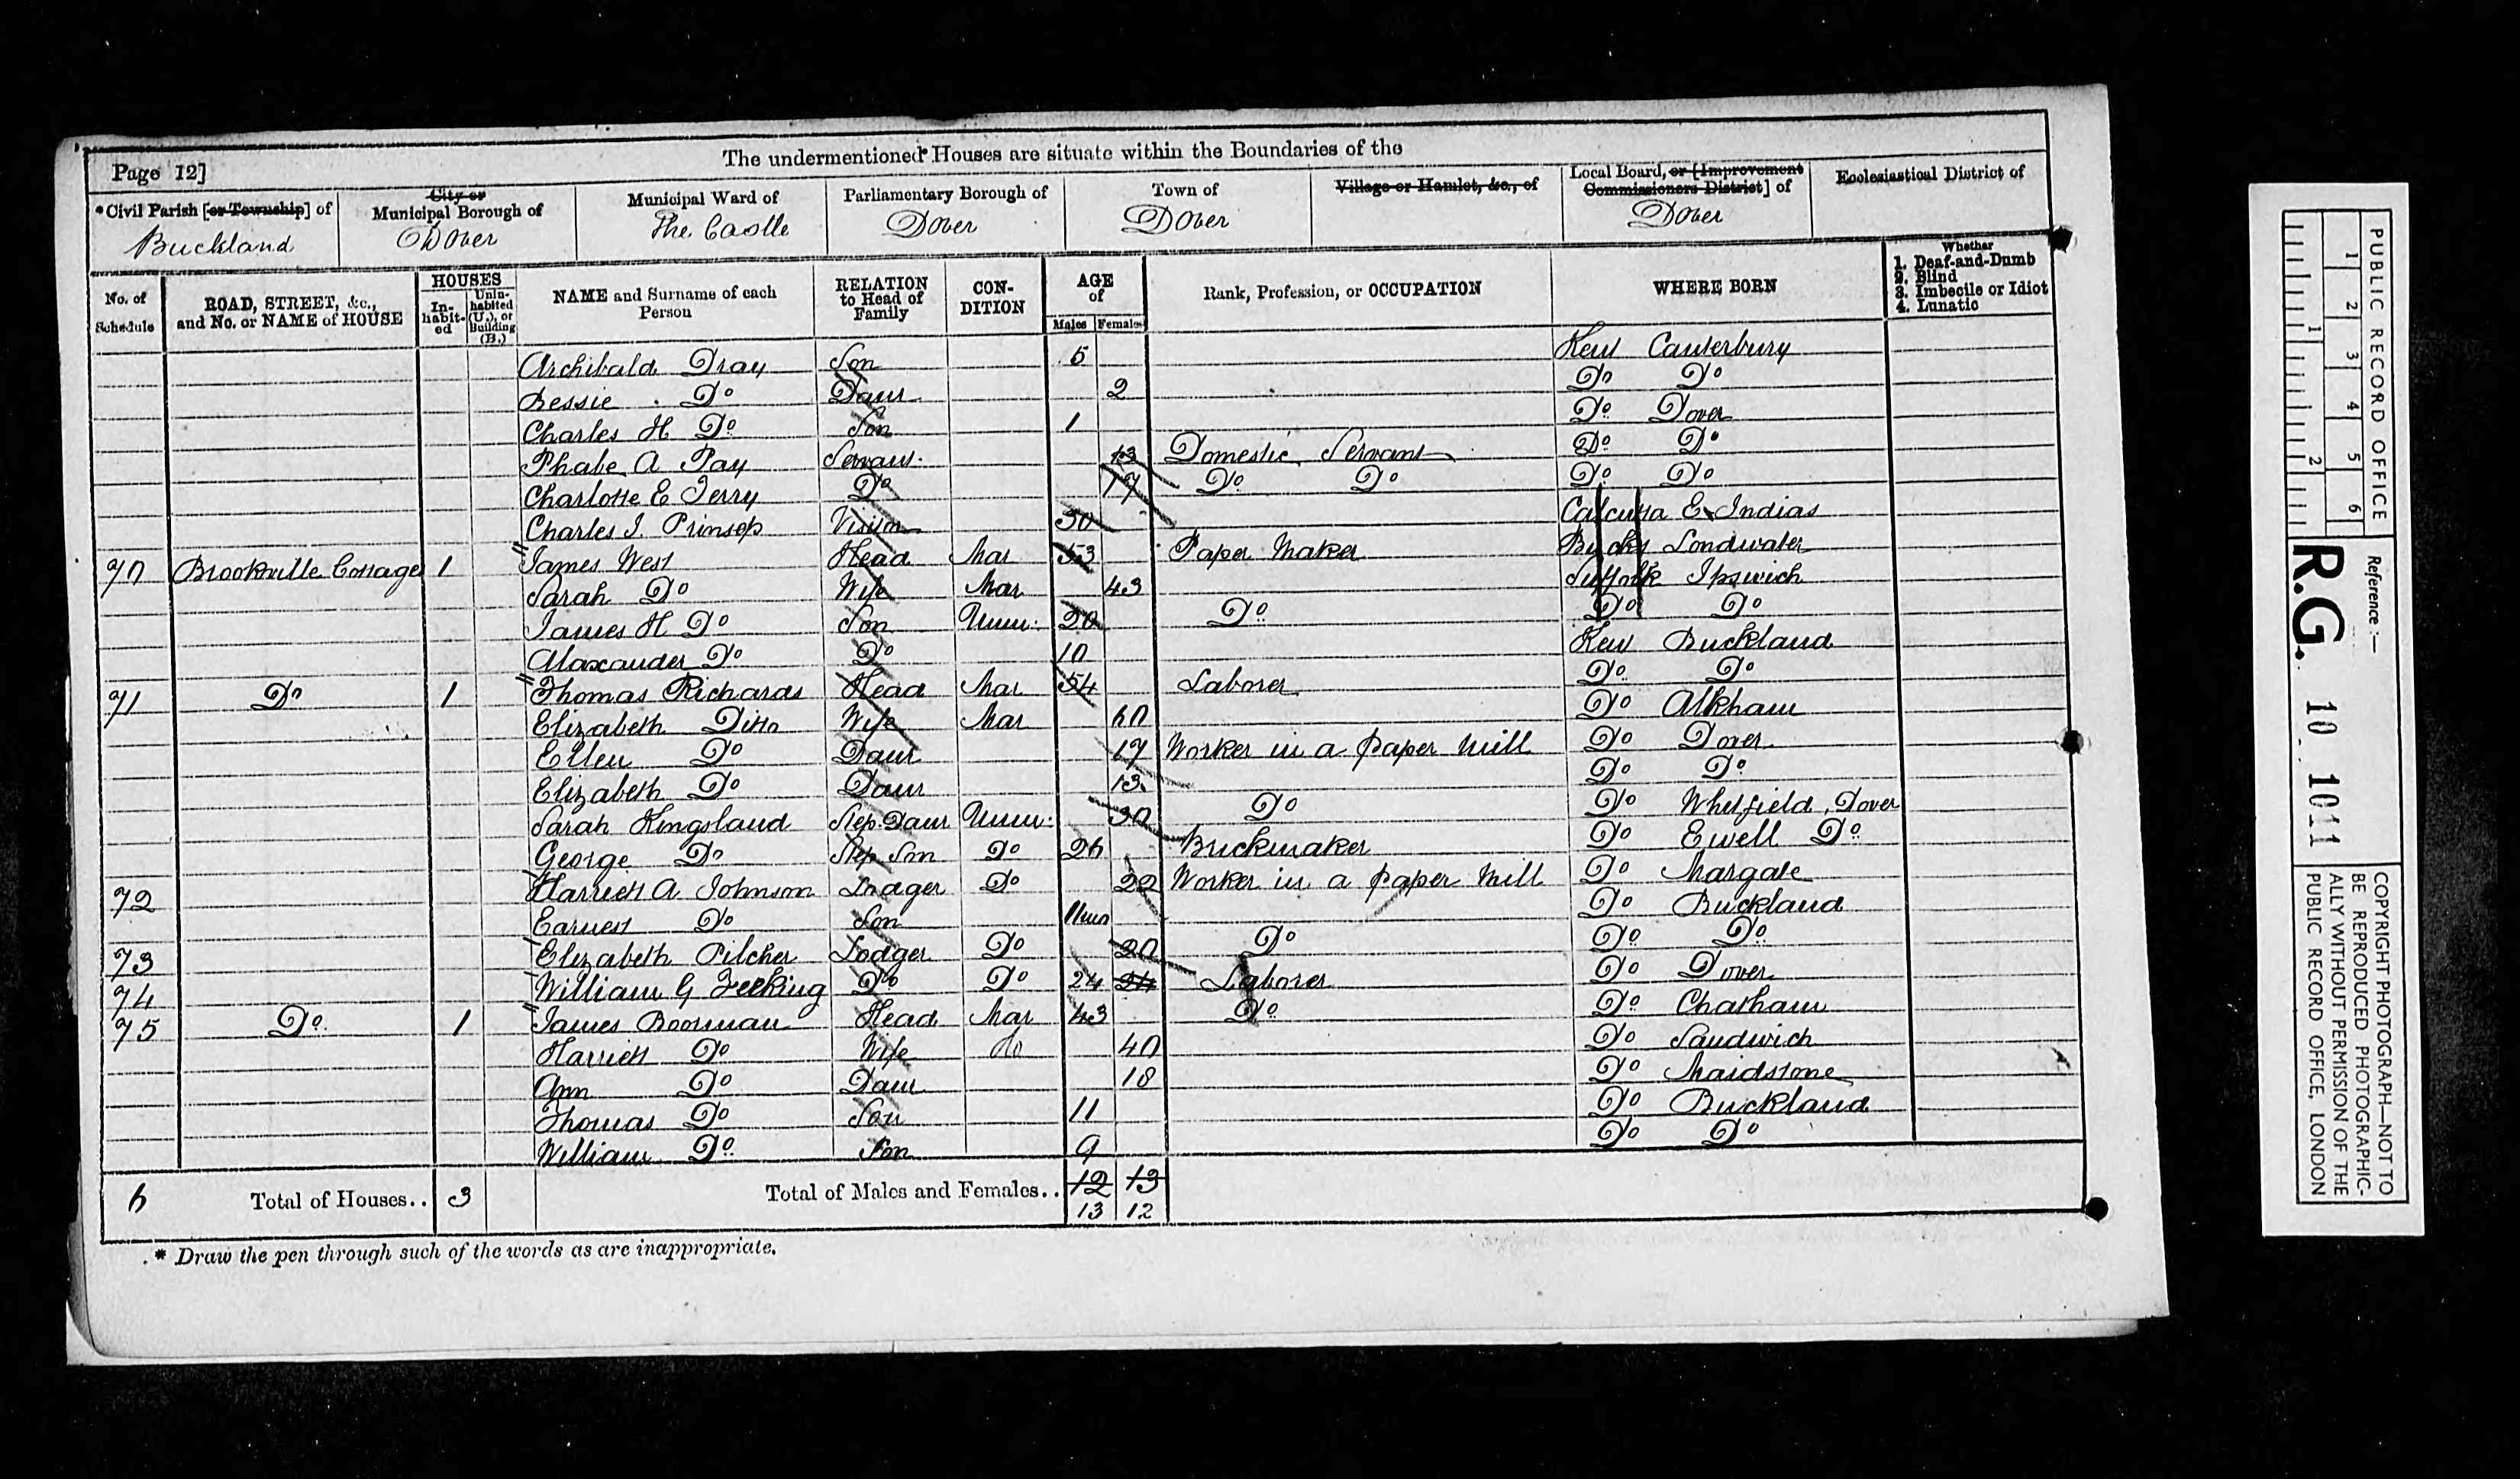 Page 12]
The undermentioned Houses are situate within the Boundaries of the
*Civil Parish [or Township] of
Buckland
City or Municipal Borough of
Dover
Municipal Ward of
The Castle
Parliamentary Borough of
Dover
Town of
Dover
Village or Hamlet, &c., of
Local Board, or [Improvement Commissioners District] of
Dover
Ecclesiastical District of
No. of Schedule
ROAD, STREET, &c., and No. or NAME of HOUSE
HOUSES
In-habit-ed
Unin-habited (U.), or Building (B.)
NAME and Surname of each Person
RELATION to Head of Family
CON-DITION
AGE of
Males Females
Rank, Profession, or OCCUPATION
WHERE BORN
Whether
1. Deaf-and-Dumb
2. Blind
3. Imbecile or Idiot
4. Lunatic
Archibald Dray Son 5 Kent Canterbury
Bessie Do Daur 2 Do Do
Charles H Do Son 1 Do Dover
Phabe A Pay Servant 13 Domestic Servant Do Do
Charlotte E Terry Do 17 Do Do Do Do
Charles I. Prinsep Visitor 30 Calcutta E Indias
70 Brookville Cottage 1 James West Head Mar 53 Paper Maker Bucks Londwater
Sarah Do Wife Mar 43 Suffolk Ipswich
James H Do Son Unm 20 Do Do Do
Alaxander Do Do 10 Kent Buckland
71 Do 1 Thomas Richards Head Mar 54 Laborer Do Do
Elizabeth Ditto Wife Mar 60 Do Alkham
Ellen Do Daur 17 Worker in a paper Mill Do Dover
Elizabeth Do Daur 13 Do Do
Sarah Kingsland Step Daur Unm 30 Do Do Whitfield Dover
George Do Step Son Do 26 Brickmaker Do Ewell Do
72 Harriett A Johnson Lodger Do 22 Worker in a paper Mill Do Margate
Earnest Do Son 11mo Do Buckland
73 Elizabeth Pilcher Lodger Do 20 Do Do Do
74 William G Do Do 24 24 Laborer Do Dover
75 Do 1 James Boorman Head Mar 43 Do Do Chatham
Harriett Do Wife Do 40 Do Sandwich
Ann Do Daur 18 Do Maidstone
Thomas Do Son 11 Do Buckland
William Do Son 9 Do Do
6 Total of Houses.. 3 Total of Males and Females.. 12 13
13 12
* Draw the pen through such of the words as are inappropriate.
PUBLIC RECORD OFFICE
1 2 3 4 5 6
1 2
Reference :—
R.G. 10 1011
COPYRIGHT PHOTOGRAPH—NOT TO
BE REPRODUCED PHOTOGRAPHIC-
ALLY WITHOUT PERMISSION OF THE
PUBLIC RECORD OFFICE, LONDON